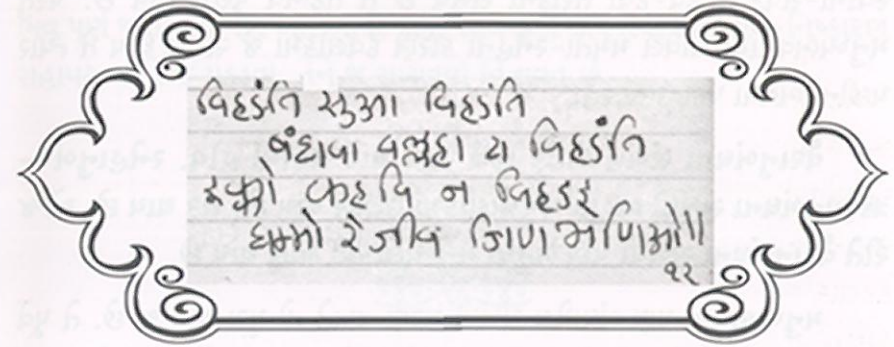 વિહડંતિ સુઆ વિહડંતિ
બંધવા વલ્લહા ય વિહડંતિ
ઇક્કો કહવિ ન વિહડઇ
ધમ્મો રે જીવ જિણ ભણિઓ॥
૧૨